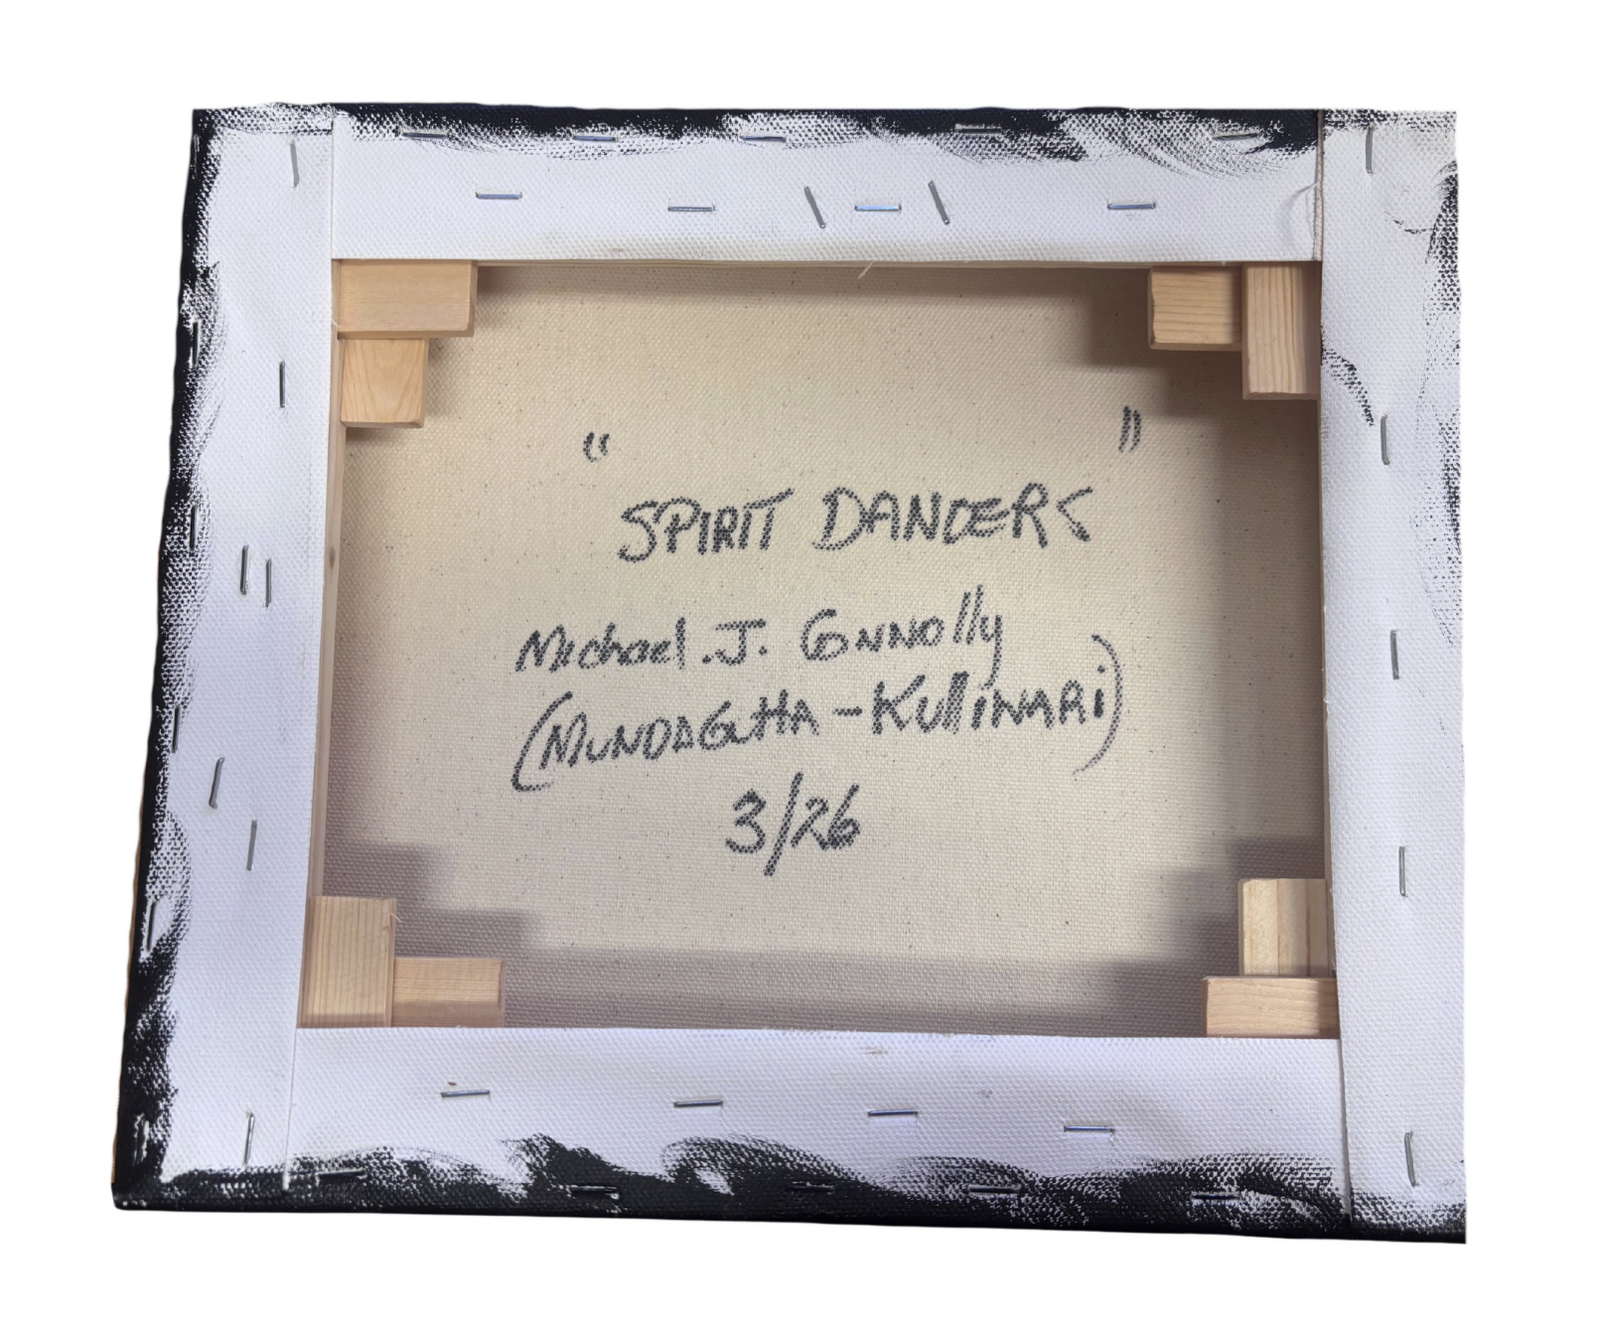 " SPIRIT DANCERS "
Michael .J. Connolly
(MUNDAGUTTA - KulliWARi)
3/26